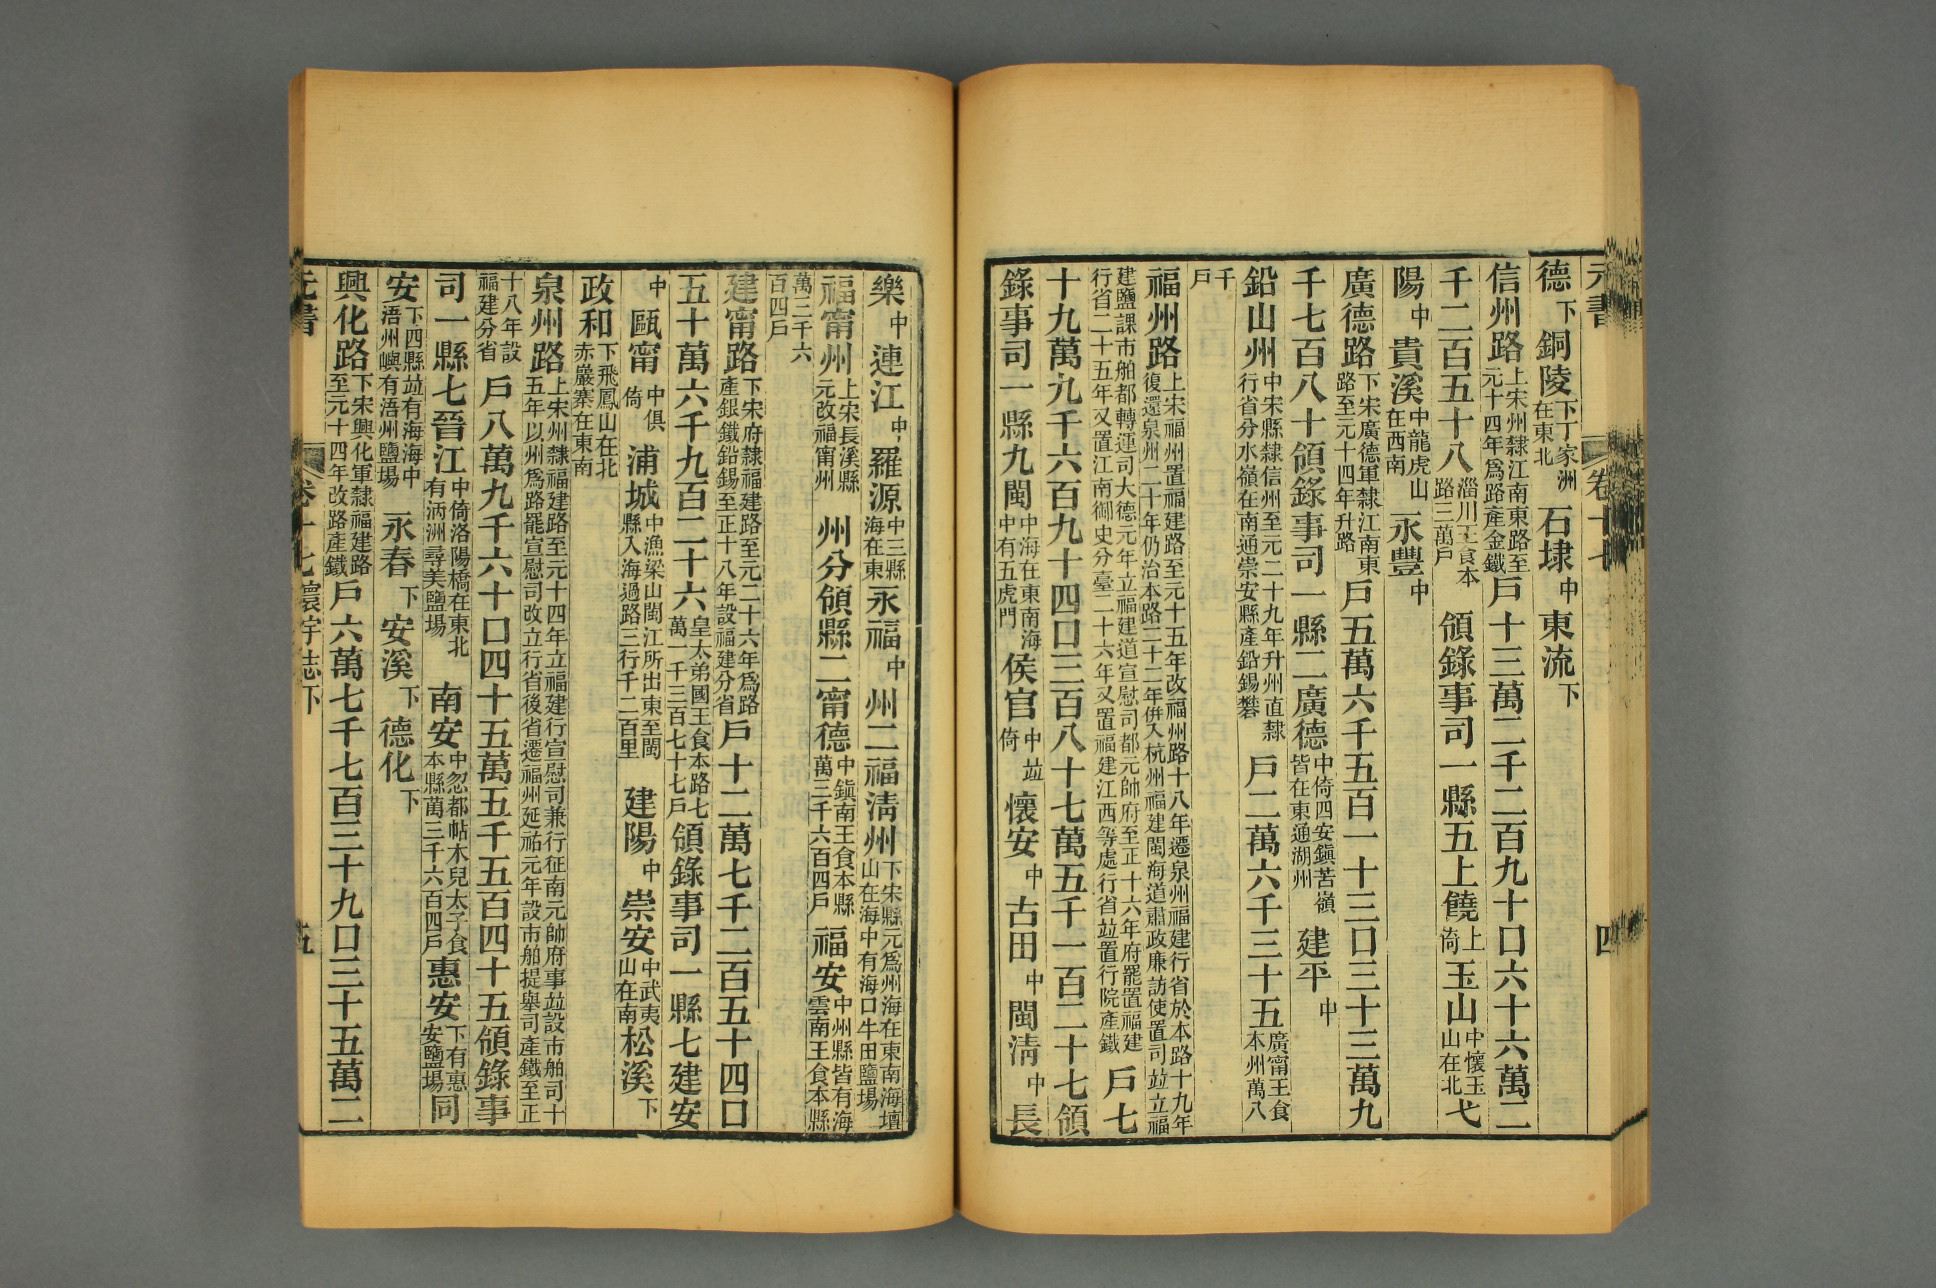 元書 卷十七 四
德下銅陵下丁家洲在東北石埭中東流下
信州路上宋州隸江南東路至元十四年爲路產金鐵戶十三萬二千二百九十口六十六萬二
千二百五十八淄川王食本路三萬戶領錄事司一縣五上饒上倚玉山中懷玉山在北弋
陽中貴溪中龍虎山在西南永豐中
廣德路下宋廣德軍隸江南東路至元十四年升路戶五萬六千五百一十三口三十三萬九
千七百八十領錄事司一縣二廣德中倚四安鎭苦嶺皆在東通湖州建平中
鉛山州中宋縣隸信州至元二十九年升州直隸行省分水嶺在南通崇安縣產鉛錫礬戶二萬六千三十五廣甯王食本州萬八
千戶
福州路上宋福州置福建路至元十五年改福州路十八年遷泉州福建行省於本路十九年復還泉州二十年仍治本路二十二年併入杭州福建閩海道肅政廉訪使置司竝立福
建鹽課市舶都轉運司大德元年立福建道宣慰司都元帥府至正十六年府罷置福建行省二十五年又置江南御史分臺二十六年又置福建江西等處行省竝置行院產鐵戶七
十九萬九千六百九十四口三百八十七萬五千一百二十七領
錄事司一縣九閩中海在東南海中有五虎門侯官中竝倚懷安中古田中閩淸中長
樂中連江中羅源中三縣海在東永福中州二福淸州下宋縣元爲州海在東南海壇山在海中有海口牛田鹽場
福甯州上宋長溪縣元改福甯州州分領縣二甯德中鎭南王食本縣萬三千六百四戶福安中州縣皆有海雲南王食本縣
萬三千六百四戶
建甯路下宋府隸福建路至元二十六年爲路產銀鐵鉛錫至正十八年設福建分省戶十二萬七千二百五十四口
五十萬六千九百二十六皇太弟國王食本路七萬一千三百七十七戶領錄事司一縣七建安
中甌甯中俱倚浦城中漁梁山閩江所出東至閩縣入海過路三行千二百里建陽中崇安中武夷山在南松溪下
政和下飛鳳山在北赤巖寨在東南
泉州路上宋州隸福建路至元十四年立福建行宣慰司兼行征南元帥府事竝設市舶司十五年以州爲路罷宣慰司改立行省後省遷福州延祐元年設市舶提舉司產鐵至正
十八年設福建分省戶八萬九千六十口四十五萬五千五百四十五領錄事
司一縣七晉江中倚洛陽橋在東北有泲洲尋美鹽場南安中忽都帖木兒太子食本縣萬三千六百四戶惠安下有惠安鹽場同
安下四縣竝有海海中浯洲嶼有浯州鹽場永春下安溪下德化下
興化路下宋興化軍隸福建路至元十四年改路產鐵戶六萬七千七百三十九口三十五萬二
元書 卷十七 寰宇志下 五